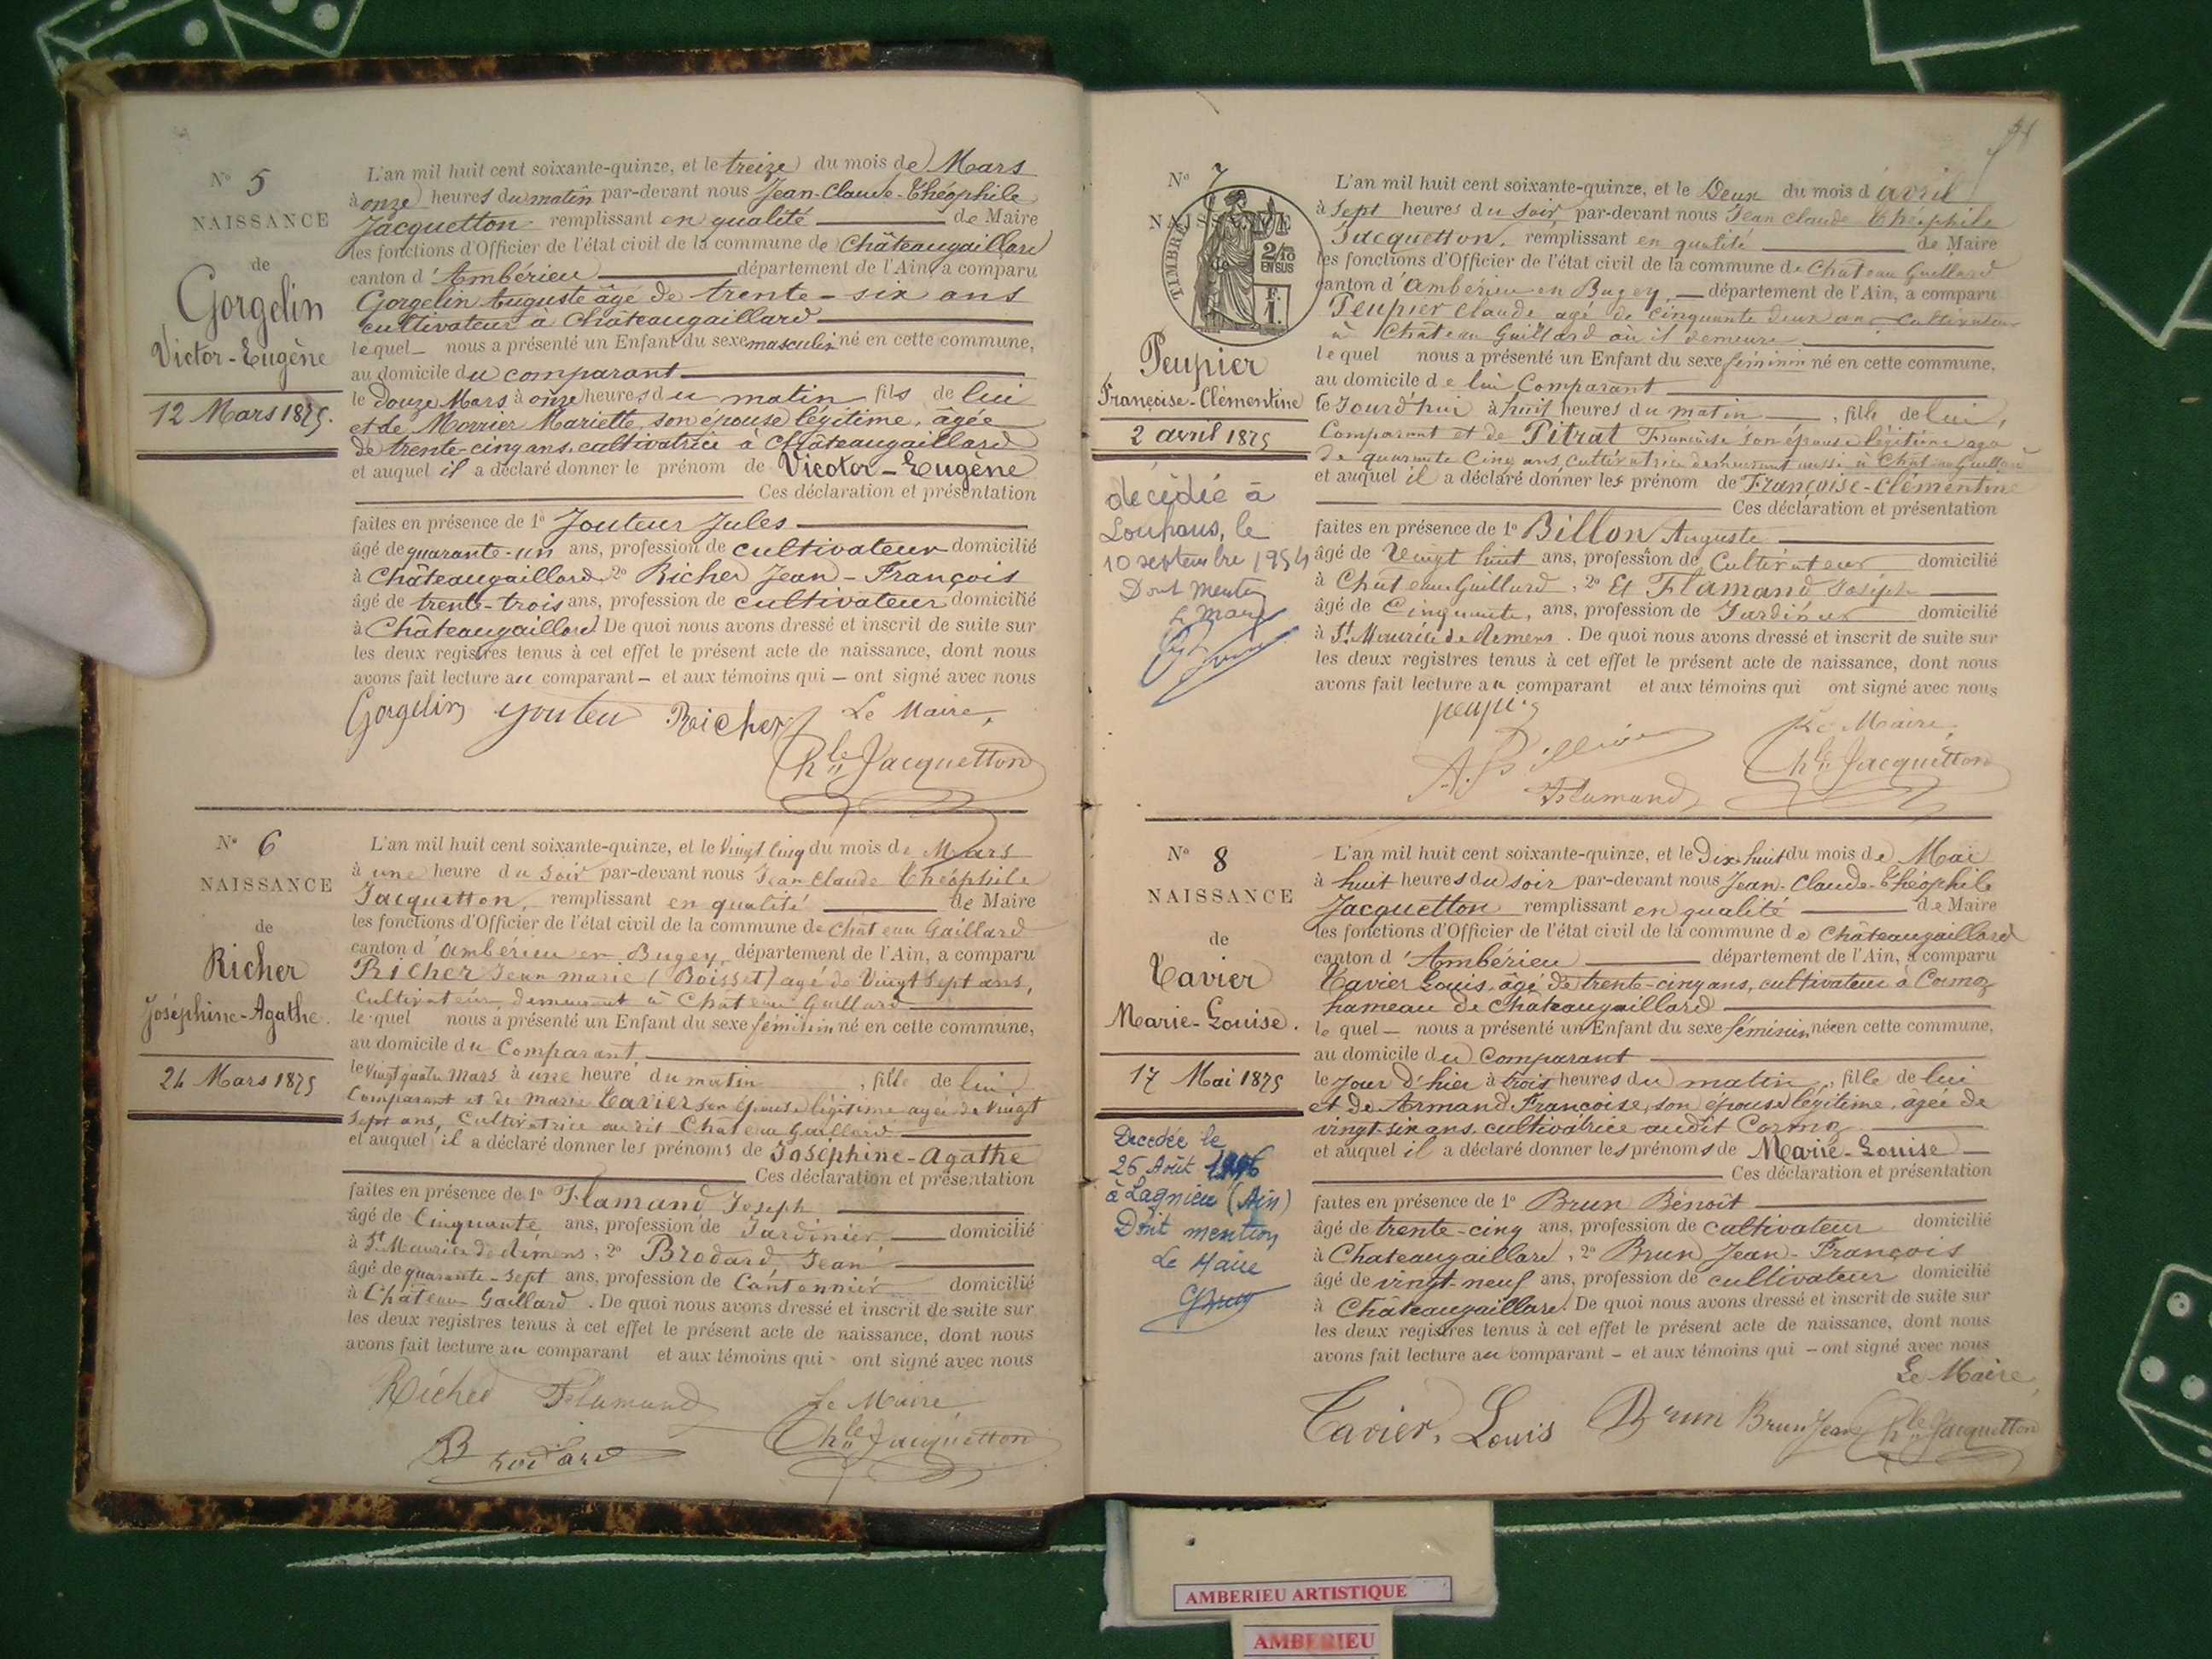 N° 5
NAISSANCE
de
Gorgelin
Victor-Eugène
12 Mars 1875.
L'an mil huit cent soixante-quinze, et le treize du mois de Mars
à onze heures du matin par-devant nous Jean-Claude-Théophile
Jacquetton remplissant en qualité de Maire
les fonctions d'Officier de l'état civil de la commune de Châteaugaillard
canton d'Ambérieu département de l'Ain, a comparu
Gorgelin Auguste âgé de trente-six ans
cultivateur à Châteaugaillard
lequel nous a présenté un Enfant du sexe masculin né en cette commune,
au domicile du comparant
le douze Mars à onze heures du matin fils de lui
et de Morrier Mariette, son épouse légitime, âgée
de trente-cinq ans, cultivatrice à Châteaugaillard
et auquel il a déclaré donner le prénom de Vicotor-Eugène
Ces déclaration et présentation
faites en présence de 1° Jouteur Jules
âgé de quarante-un ans, profession de cultivateur domicilié
à Châteaugaillard, 2° Richer Jean-François
âgé de trente-trois ans, profession de cultivateur domicilié
à Châteaugaillard De quoi nous avons dressé et inscrit de suite sur
les deux registres tenus à cet effet le présent acte de naissance, dont nous
avons fait lecture au comparant - et aux témoins qui - ont signé avec nous
Gorgelin Jouteu Richer Le Maire,
Jacquetton
N° 6
NAISSANCE
de
Richer
Joséphine-Agathe.
24 Mars 1875
L'an mil huit cent soixante-quinze, et le Vingt Cinq du mois de Mars
à une heure du soir par-devant nous Jean Claude Théophile
Jacquetton, remplissant en qualité de Maire
les fonctions d'Officier de l'état civil de la commune de Chateau Gaillard
canton d'ambérieu en Bugey, département de l'Ain, a comparu
Richer Jean marie (Boisset) agé de Vingt sept ans,
Cultivateur demeurant à Chateau Gaillard
le quel nous a présenté un Enfant du sexe féminin né en cette commune,
au domicile du Comparant,
le vingt quatre Mars à une heure du matin, fille de lui
Comparant et de Marie Tavier son épouse légitime agée de Vingt
Sept ans, Cultivatrice au dit Chateau Gaillard
et auquel il a déclaré donner les prénoms de Joséphine-Agathe
Ces déclaration et présentation
faites en présence de 1° Flamand Joseph
âgé de Cinquante ans, profession de Jardinier, domicilié
à St. Maurice de Rémens, 2° Brodard, Jean
âgé de quarante-sept ans, profession de Cantonnier domicilié
à Château Gaillard. De quoi nous avons dressé et inscrit de suite sur
les deux registres tenus à cet effet le présent acte de naissance, dont nous
avons fait lecture au comparant et aux témoins qui - ont signé avec nous
Richer Flamand Le Maire,
Brodard Jacquetton
N° 7
NAISSANCE
TIMBRE
2/10
EN SUS
1 f.
Peupier
Françoise-Clémentine
2 avril 1875
decédée à
Louhans, le
10 septembre 1954
Dont mention
Le Maire
L'an mil huit cent soixante-quinze, et le Deux du mois d'avril
à sept heures du soir, par-devant nous Jean Claude Théophile
Jacquetton, remplissant en qualité de Maire
les fonctions d'Officier de l'état civil de la commune de Chateau Gaillard
canton d'ambérieu en Bugey, département de l'Ain, a comparu
Peupier Claude agé de Cinquante deux ans Cultivateur
à Chateau Gaillard où il demeure
le quel nous a présenté un Enfant du sexe féminin né en cette commune,
au domicile de lui Comparant
le Jourd'hui à huit heures du matin, fille de lui,
Comparant et de Pitrat Françoise son épouse légitime age
de quarante Cinq ans, Cultivatrice demeurant aussi à Chateau Gaillard
et auquel il a déclaré donner les prénom de Françoise-Clémentine
Ces déclaration et présentation
faites en présence de 1° Billon Auguste
âgé de Vingt huit ans, profession de Cultivateur domicilié
à Chateau Gaillard, 2° Et Flamand Joseph
âgé de Cinquante, ans, profession de Jardinier domicilié
à St. Maurice de Rémens. De quoi nous avons dressé et inscrit de suite sur
les deux registres tenus à cet effet le présent acte de naissance, dont nous
avons fait lecture au comparant et aux témoins qui ont signé avec nous
A. Billion Le Maire,
Flamand Jacquetton
N° 8
NAISSANCE
de
Tavier
Marie-Louise.
17 Mai 1875
Decedée le
26 Août
à Lagnieu (Ain)
Dont mention
Le Maire
L'an mil huit cent soixante-quinze, et le Dix-huit du mois de Mai
à huit heures du soir par-devant nous Jean-Claude-Théophile
Jacquetton remplissant en qualité de Maire
les fonctions d'Officier de l'état civil de la commune de Châteaugaillard
canton d'Ambérieu département de l'Ain, a comparu
Tavier Louis, âgé de trente-cinq ans, cultivateur à Cormoz
hameau de Chateaugaillard
le quel - nous a présenté un Enfant du sexe féminin née en cette commune,
au domicile du comparant
le jour d'hier à trois heures du matin, fille de lui
et de Armand Françoise, son épouse légitime, agée de
vingt-six ans, cultivatrice audit Cormoz
et auquel il a déclaré donner les prénoms de Marie-Louise
Ces déclaration et présentation
faites en présence de 1° Brun Benoît
âgé de trente-cinq ans, profession de cultivateur domicilié
à Chateaugaillard, 2° Brun Jean-François
âgé de vingt-neuf ans, profession de cultivateur domicilié
à Châteaugaillard. De quoi nous avons dressé et inscrit de suite sur
les deux registres tenus à cet effet le présent acte de naissance, dont nous
avons fait lecture au comparant - et aux témoins qui - ont signé avec nous
Le Maire,
Tavier, Louis Brun Brun Jean Jacquetton
AMBERIEU ARTISTIQUE
AMBERIEU